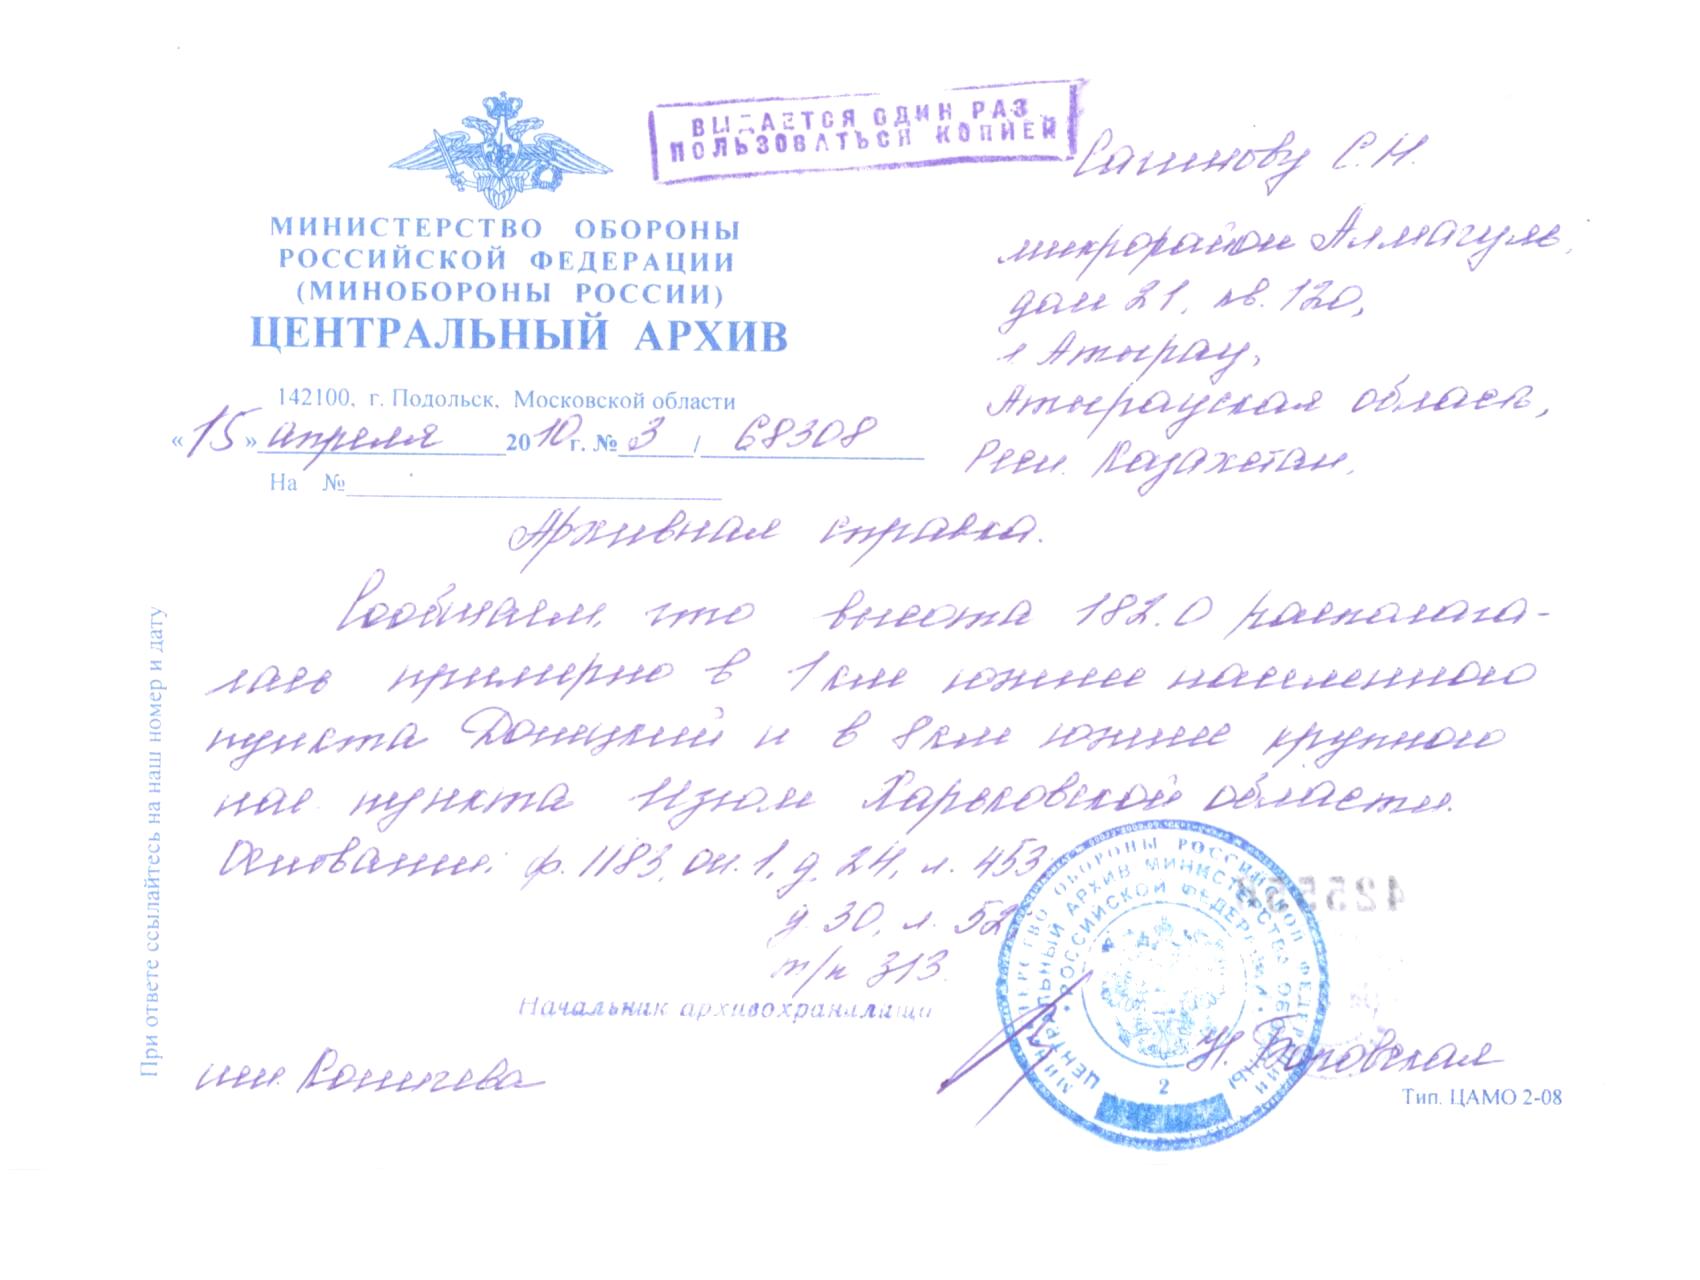 ВЫДАЕТСЯ ОДИН РАЗ
ПОЛЬЗОВАТЬСЯ КОПИЕЙ
Сагинову С.Н.
микрорайон Алмагуль,
дом 21, кв. 120,
г Атырау,
Атырауская область,
Респ. Казахстан.
МИНИСТЕРСТВО ОБОРОНЫ
РОССИЙСКОЙ ФЕДЕРАЦИИ
(МИНОБОРОНЫ РОССИИ)
ЦЕНТРАЛЬНЫЙ АРХИВ
142100, г. Подольск, Московской области
«15» апреля 2010 г. № 3 / 68308
На №
Архивная справка.
Сообщаем, что высота 182.0 располага-
лась примерно в 1 км южнее населенного
пункта Донецкий и в 8 км южнее крупного
нас. пункта Изюм Харьковской области.
Основание: ф. 1183, оп. 1, д. 24, л. 453
д. 30, л. 52
т/н 313.
Начальник архивохранилища
Н. Боровская
исп.
При ответе ссылайтесь на наш номер и дату
МИНИСТЕРСТВО ОБОРОНЫ РОССИЙСКОЙ ФЕДЕРАЦИИ
ЦЕНТРАЛЬНЫЙ АРХИВ МИНИСТЕРСТВА ОБОРОНЫ
РОССИЙСКОЙ ФЕДЕРАЦИИ
2
Тип. ЦАМО 2-08